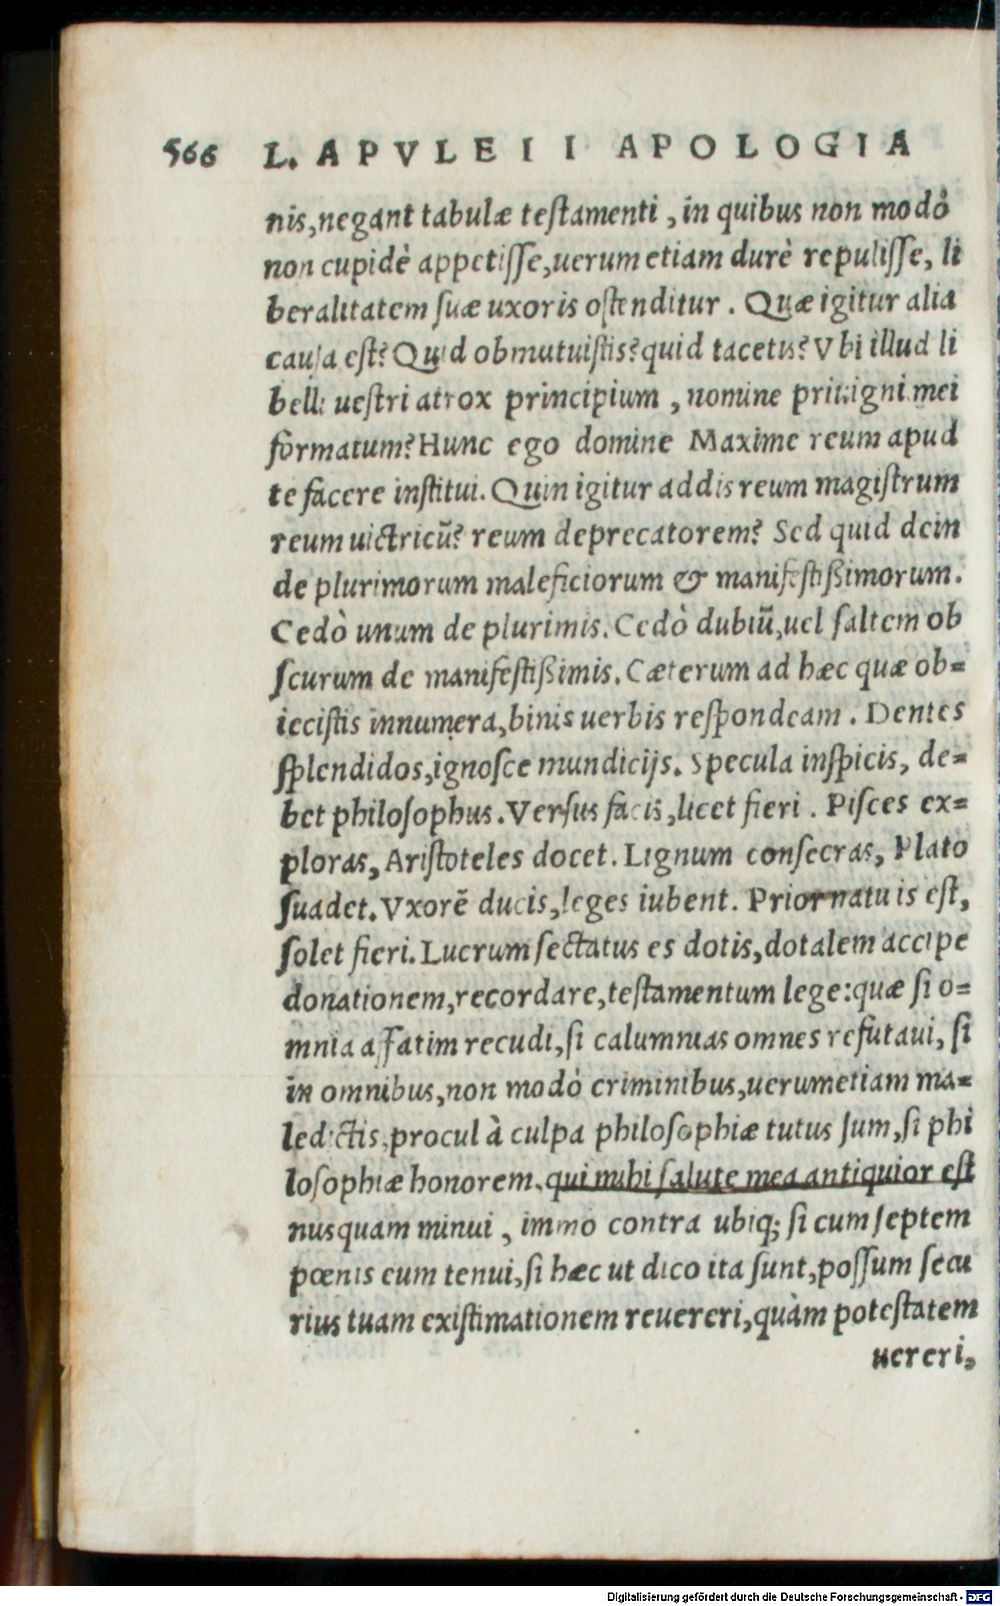 566 L. APVLEII APOLOGIA
nis,negant tabulæ teſtamenti , in quibus non modò
non cupidè appetiſſe,uerum etiam durè repuliſſe, li
beralitatem ſuæ uxoris oſtenditur . Quæ igitur alia
cauſa eſt? Quid obmutuiſtis? quid tacetis? Vbi illud li
belli ueſtri atrox principium , nomine priuigni mei
formatum? Hunc ego domine Maxime reum apud
te facere inſtitui. Quin igitur addis reum magiſtrum
reum uictricũ? reum deprecatorem? Sed quid dein
de plurimorum maleficiorum & manifeſtißimorum.
Cedò unum de plurimis. Cedò dubiũ,uel ſaltem ob
ſcurum de manifeſtißimis. Cæterum ad hæc quæ ob=
ieciſtis innumera,binis uerbis reſpondeam . Dentes
ſplendidos,ignoſce mundicijs. Specula inſpicis, de=
bet philoſophus. Verſus facis,licet fieri . Piſces ex=
ploras, Ariſtoteles docet. Lignum conſecras, Plato
ſuadet. Vxorẽ ducis,leges iubent. Prior natu is eſt,
ſolet fieri. Lucrum ſectatus es dotis,dotalem accipe
donationem,recordare,teſtamentum lege:quæ ſi o=
mnia affatim recudi,ſi calumnias omnes refutaui, ſi
in omnibus,non modò criminibus,uerumetiam ma=
ledictis,procul à culpa philoſophiæ tutus ſum,ſi phi
loſophiæ honorem,qui mihi ſalute mea antiquior eſt
nusquam minui , immo contra ubiq; ſi cum ſeptem
pœnis eum tenui,ſi hæc ut dico ita ſunt,poſſum ſecu
rius tuam exiſtimationem reuereri,quàm poteſtatem
uereri,
Digitalisierung gefördert durch die Deutsche Forschungsgemeinschaft - DFG